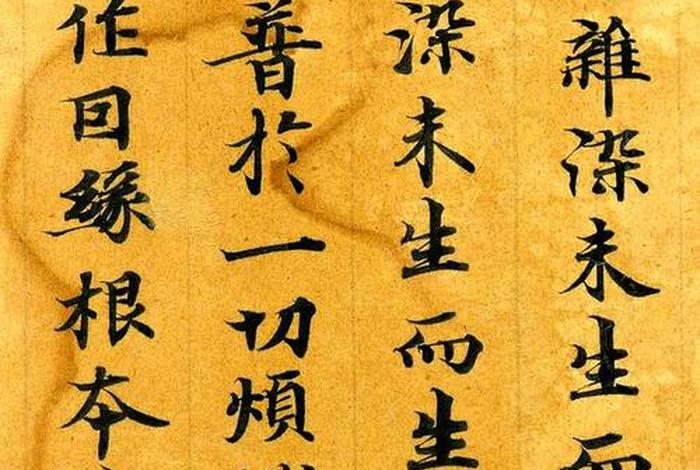 雜染未生而
染未生而生
普於一切煩
作因緣根本